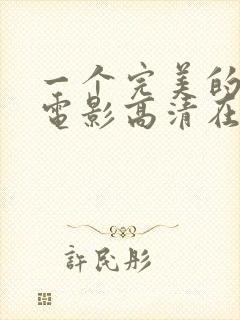 一个完美的
電影高清在
許民彤